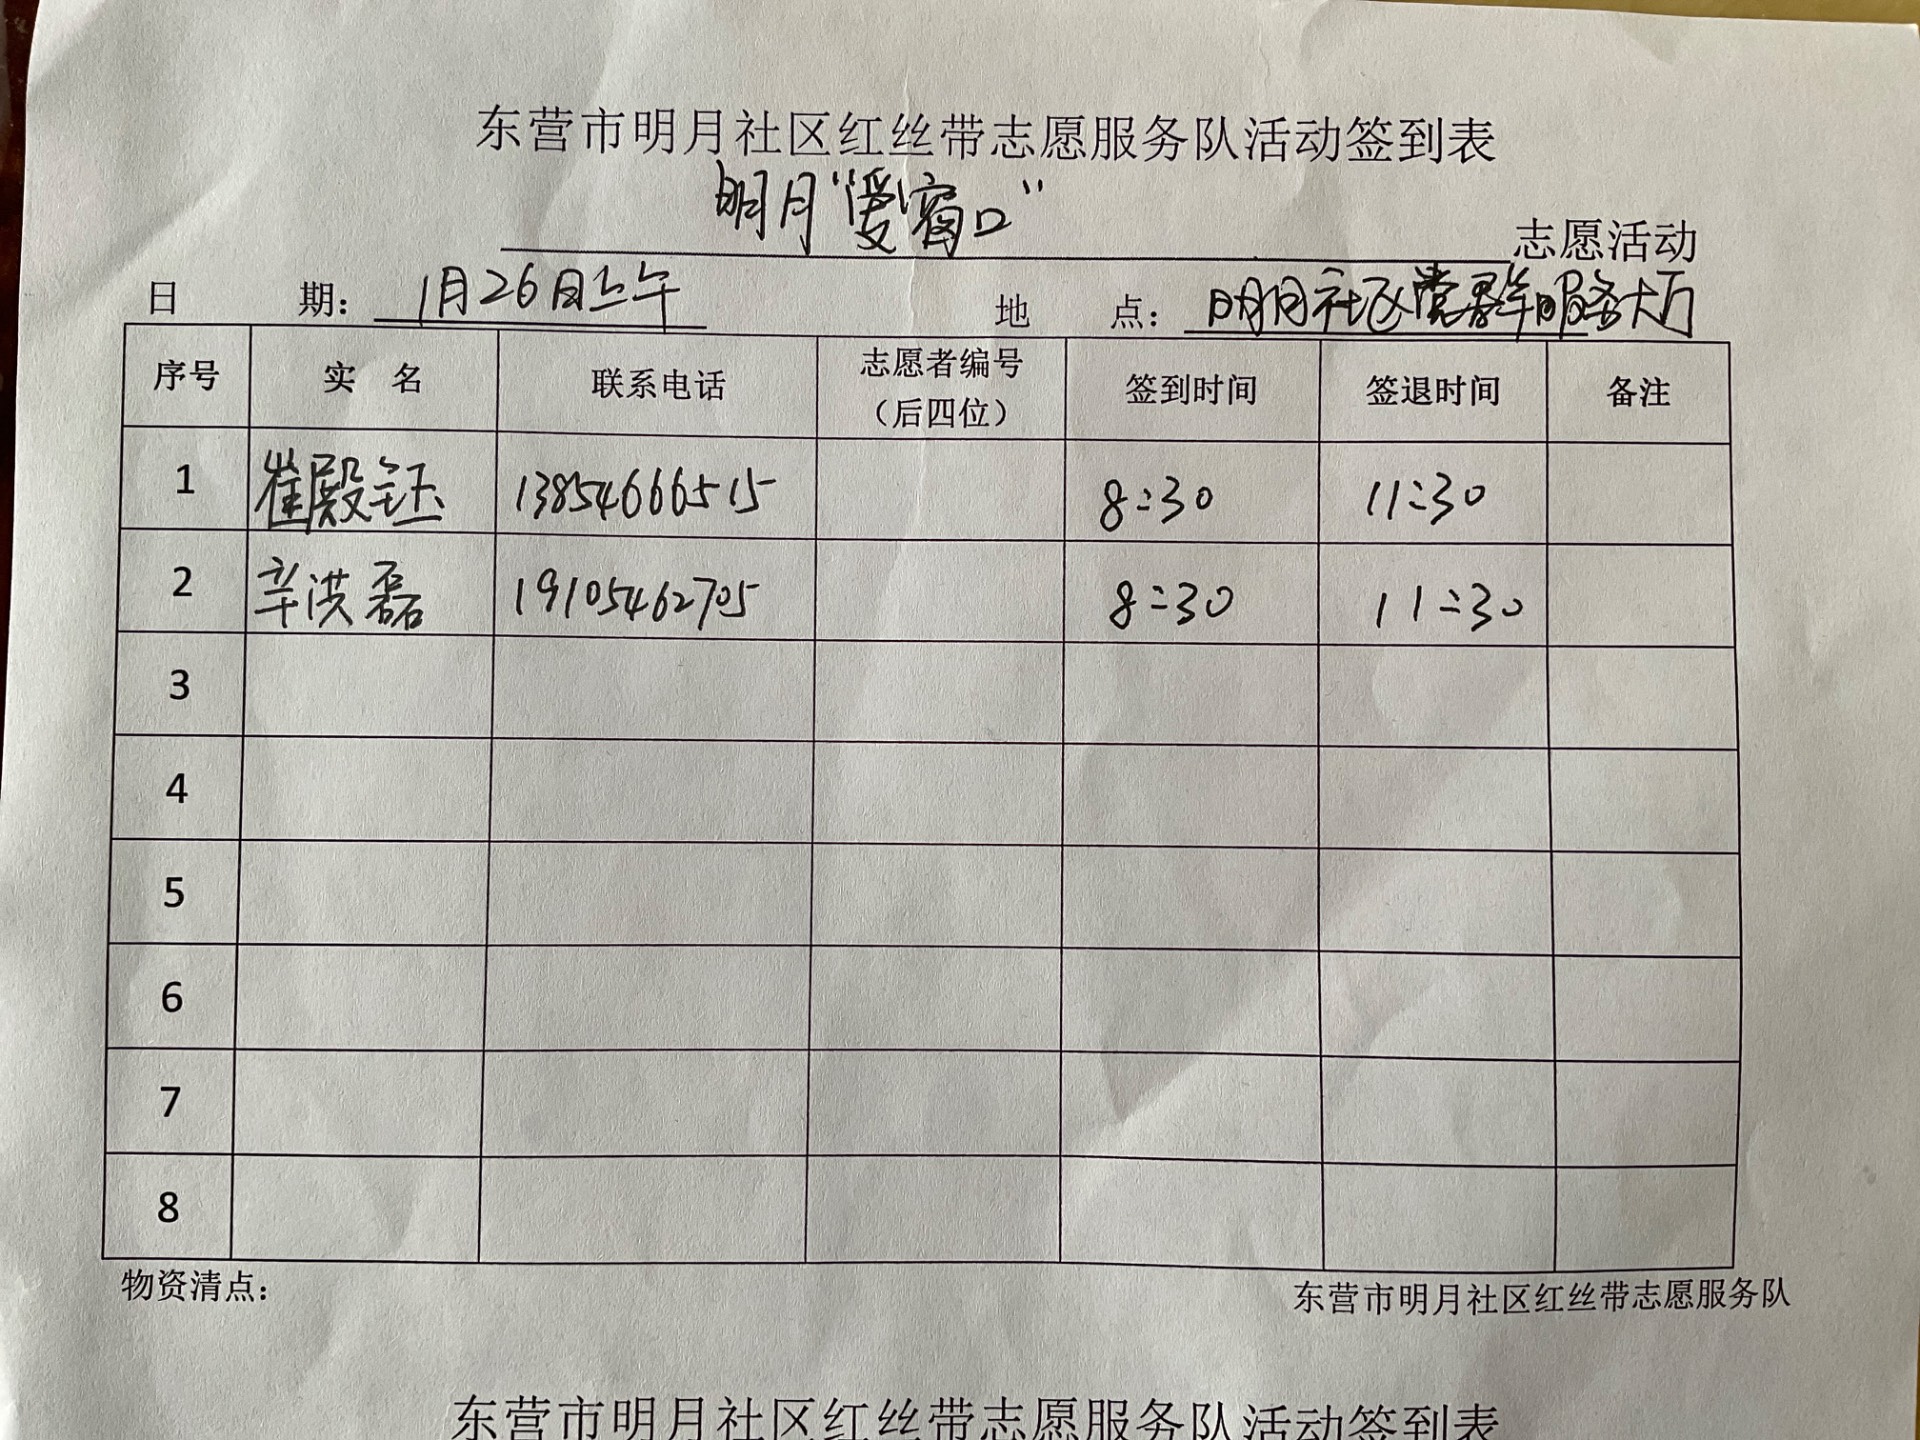 东营市明月社区红丝带志愿服务队活动签到表
明月“爱窗口” 志愿活动
日 期： 1月26日上午 地 点： 明月社区党群服务大厅
序号 实 名 联系电话 志愿者编号（后四位） 签到时间 签退时间 备注
1 崔殿钰 13854666515 8:30 11:30
2 辛洪磊 19105462705 8:30 11:30
3
4
5
6
7
8
物资清点： 东营市明月社区红丝带志愿服务队
东营市明月社区红丝带志愿服务队活动签到表